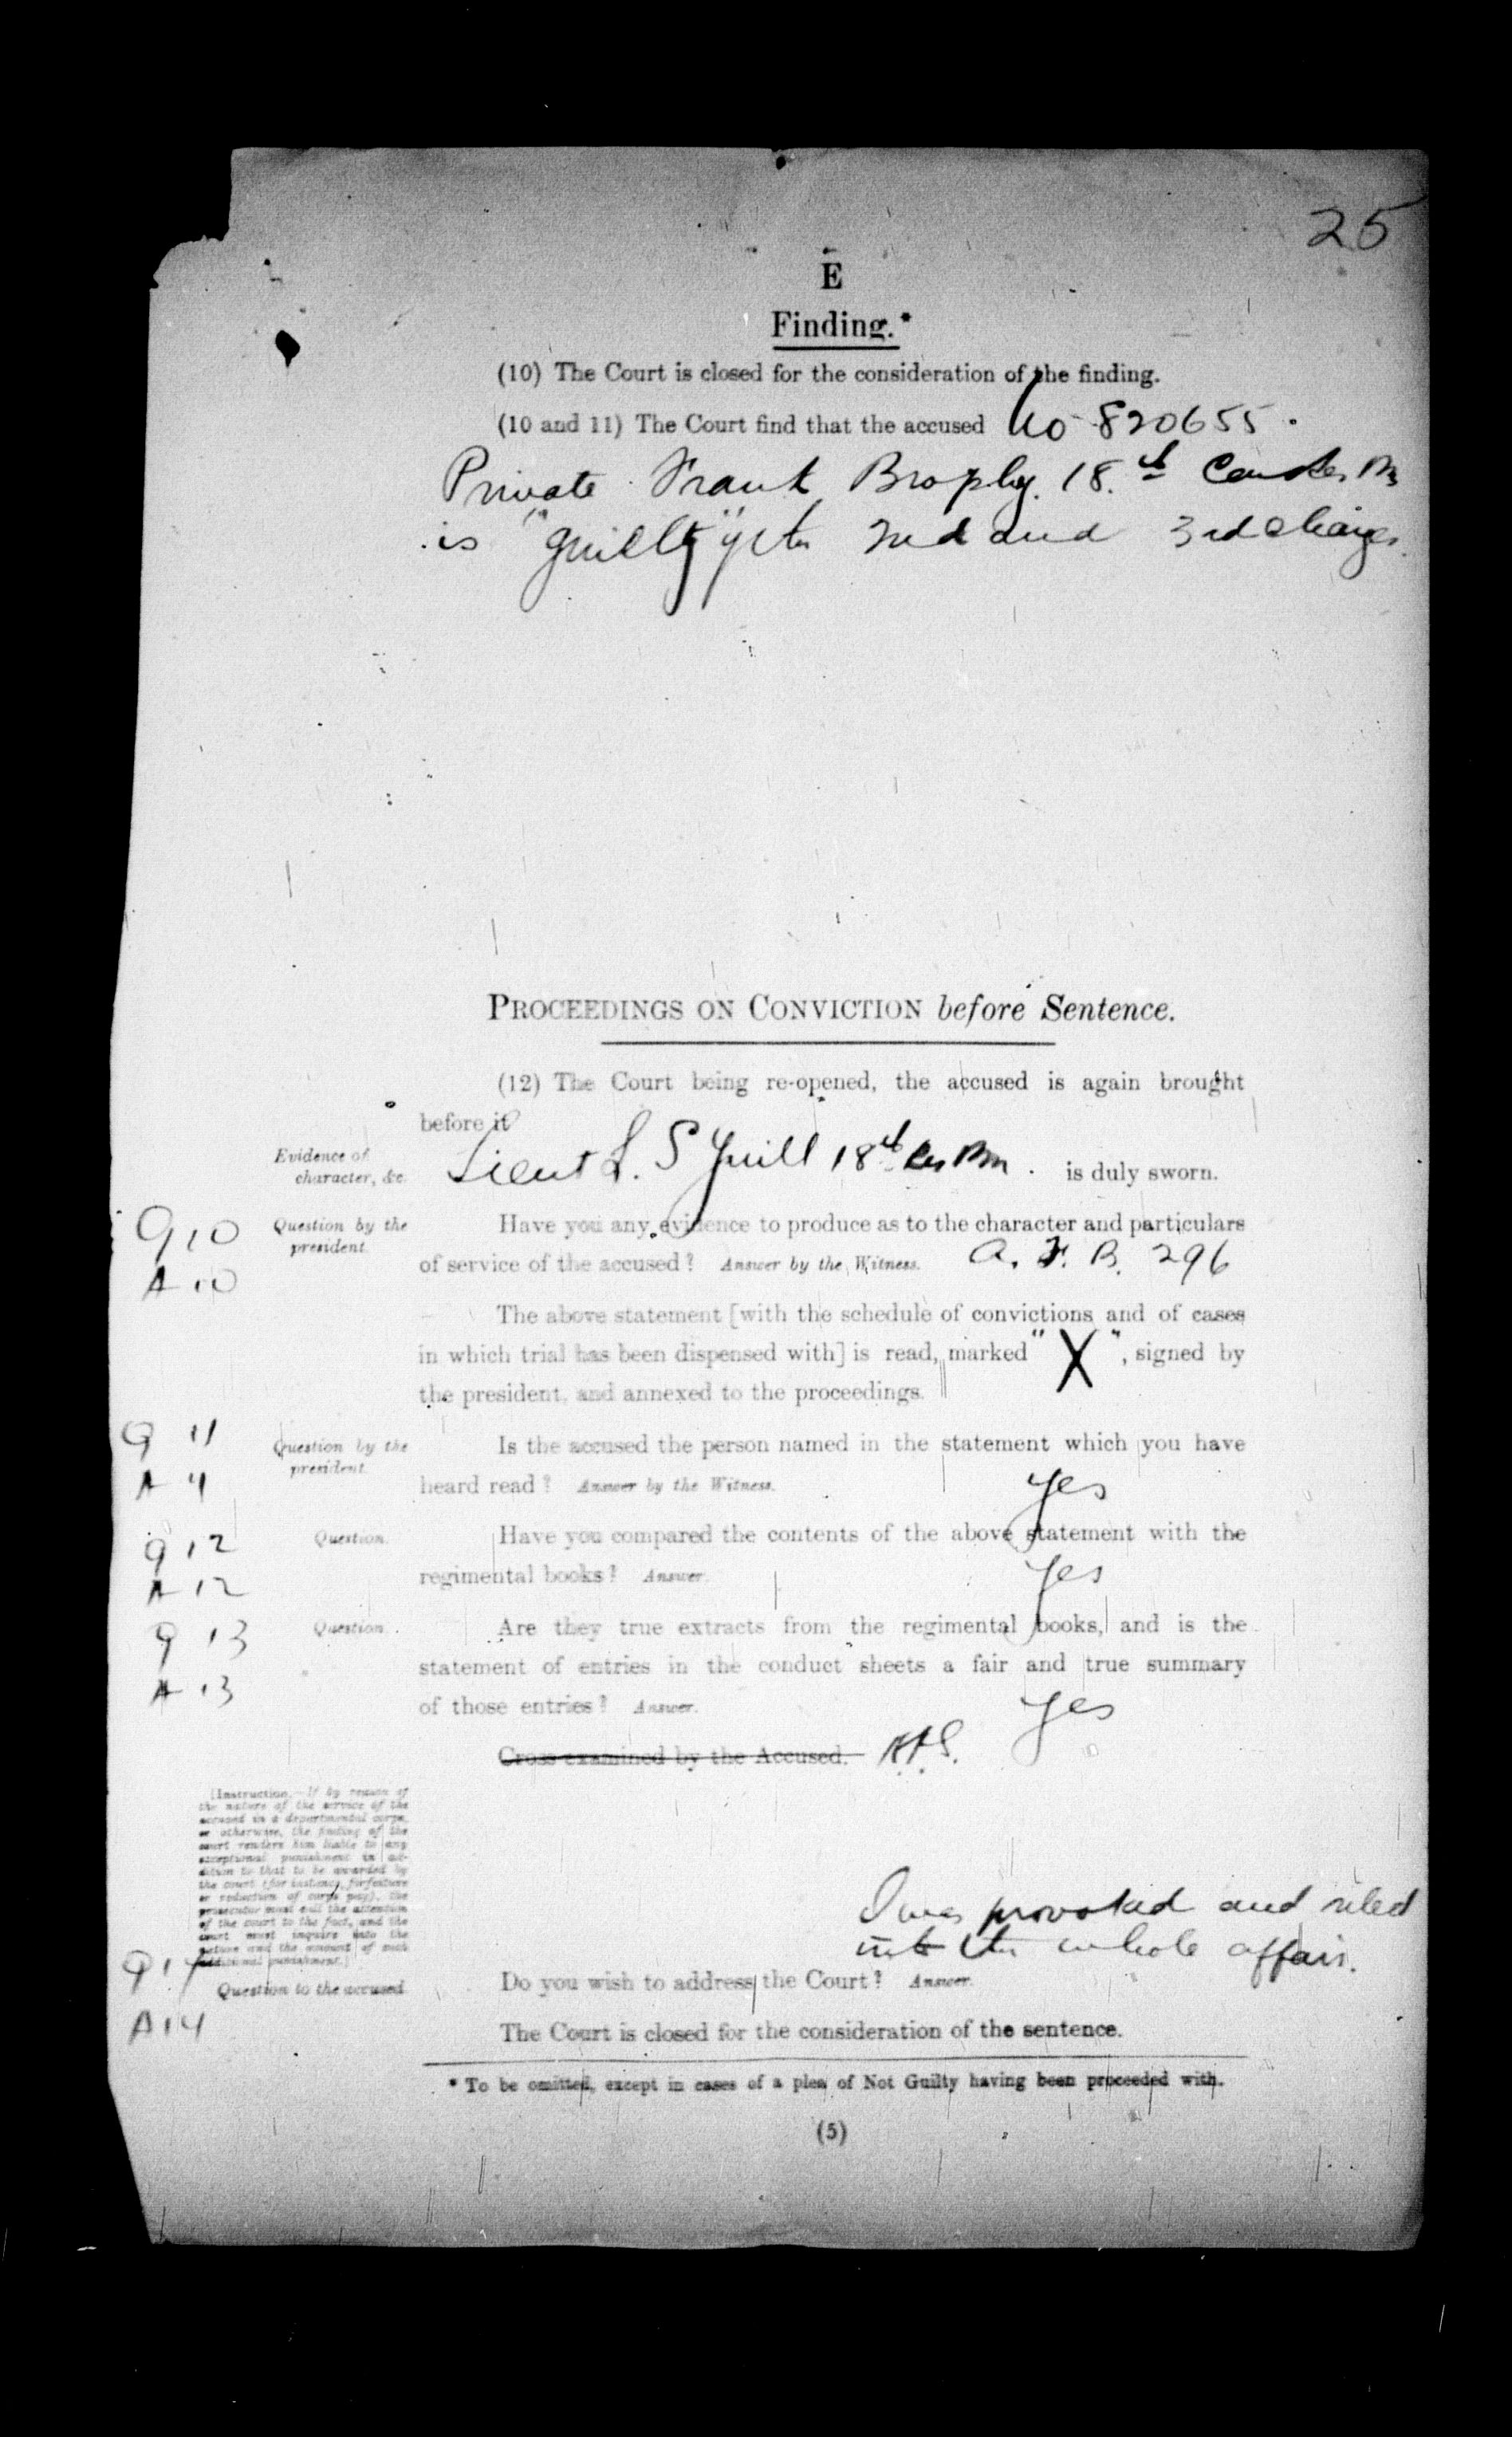 25
E
Finding.*
(10) The Court is closed for the consideration of the finding.
(10 and 11) The Court find that the accused No 820655.
Private Frank Brophy. 18.th Can Res Bn
is "guilty" of the 2nd and 3rd charges.
PROCEEDINGS ON CONVICTION before Sentence.
(12) The Court being re-opened, the accused is again brought
before it
Evidence of
character, &c.
Lieut L. S Yuill 18th Res Bn. is duly sworn.
Q 10 Question by the president. Have you any evidence to produce as to the character and particulars
A 10 of service of the accused? Answer by the Witness. A. F. B. 296
The above statement [with the schedule of convictions and of cases
in which trial has been dispensed with] is read, marked "X", signed by
the president, and annexed to the proceedings.
Q 11 Question by the president. Is the accused the person named in the statement which you have
A 11 heard read? Answer by the Witness. Yes
Q 12 Question. Have you compared the contents of the above statement with the
A 12 regimental books? Answer. Yes
Q 13 Question. Are they true extracts from the regimental books, and is the
A 13 statement of entries in the conduct sheets a fair and true summary
of those entries? Answer. Yes
Cross-examined by the Accused.
[Instruction.—If by reason of
the nature of the service of the
accused in a departmental corps,
or otherwise, the finding of the
court renders him liable to any
exceptional punishment in ad-
dition to that to be awarded by
the court (for instance, forfeiture
or reduction of corps pay), the
prosecutor must call the attention
of the court to the fact, and the
court must inquire into the
nature and the amount of such
additional punishment.]
I was provoked and riled
into the whole affair.
Q 14 Question to the accused. Do you wish to address the Court? Answer.
A 14
The Court is closed for the consideration of the sentence.
* To be omitted, except in cases of a plea of Not Guilty having been proceeded with.
(5)